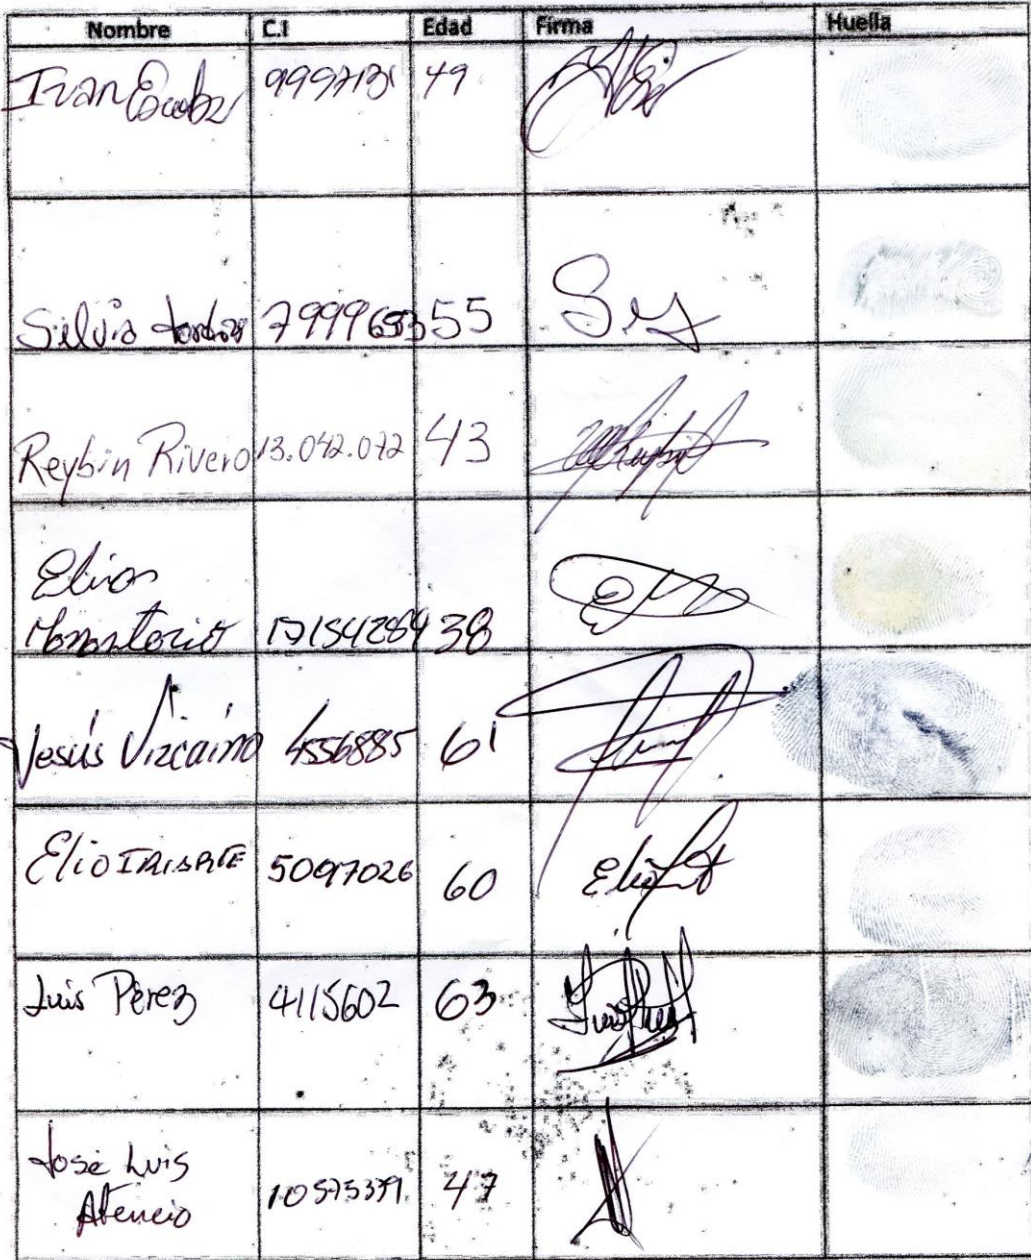 Nombre C.I Edad Firma Huella
Ivan Escobar 49
Silvia 55
Reybin Rivero 13.042.072 43
Elios
Monasterio 17154289 38
Jesús Vizcaíno 4556885 61
Elio IRIARTE 5097026 60
Luis Pérez 4115602 63
José Luis
Atencio 10575339 47